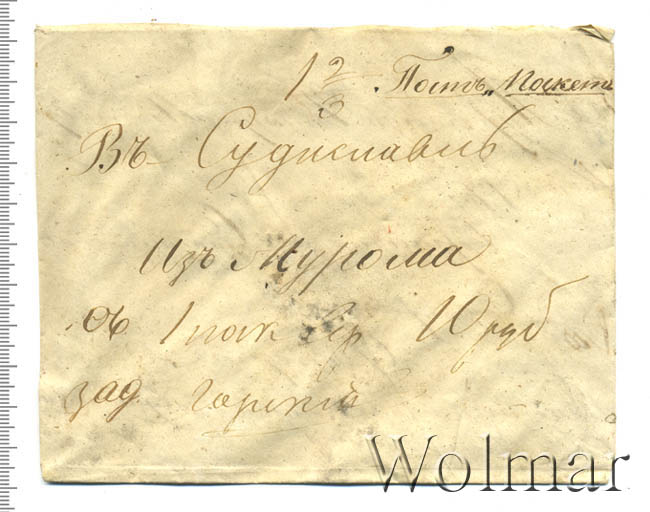 1 2/3 Постъ „Пакетъ
Въ Судиславль
Изъ Мурома
съ 1 пак Сер 10 руб
зад Горскій
Wolmar